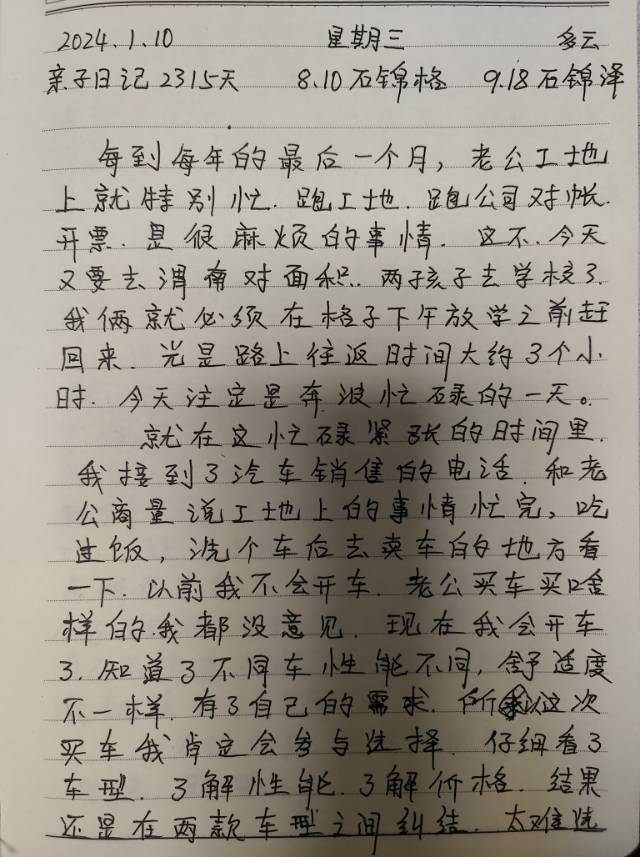 2024.1.10 星期三 多云
亲子日记2315天 8.10石锦格 9.18石锦泽
每到每年的最后一个月，老公工地
上就特别忙.跑工地.跑公司对帐.
开票.是很麻烦的事情.这不.今天
又要去渭南对面积.两孩子去学校了.
我俩就必须在格子下午放学之前赶
回来.光是路上往返时间大约3个小
时.今天注定是奔波忙碌的一天。
就在这忙碌紧张的时间里.
我接到了汽车销售的电话.和老
公商量说工地上的事情忙完，吃
过饭，洗个车后去卖车的地方看
一下.以前我不会开车.老公买车买啥
样的我都没意见.现在我会开车
了.知道了不同车性能不同，舒适度
不一样.有了自己的需求.所以这次
买车我肯定会参与选择.仔细看了
车型.了解性能.了解价格.结果
还是在两款车型之间纠结.太难选